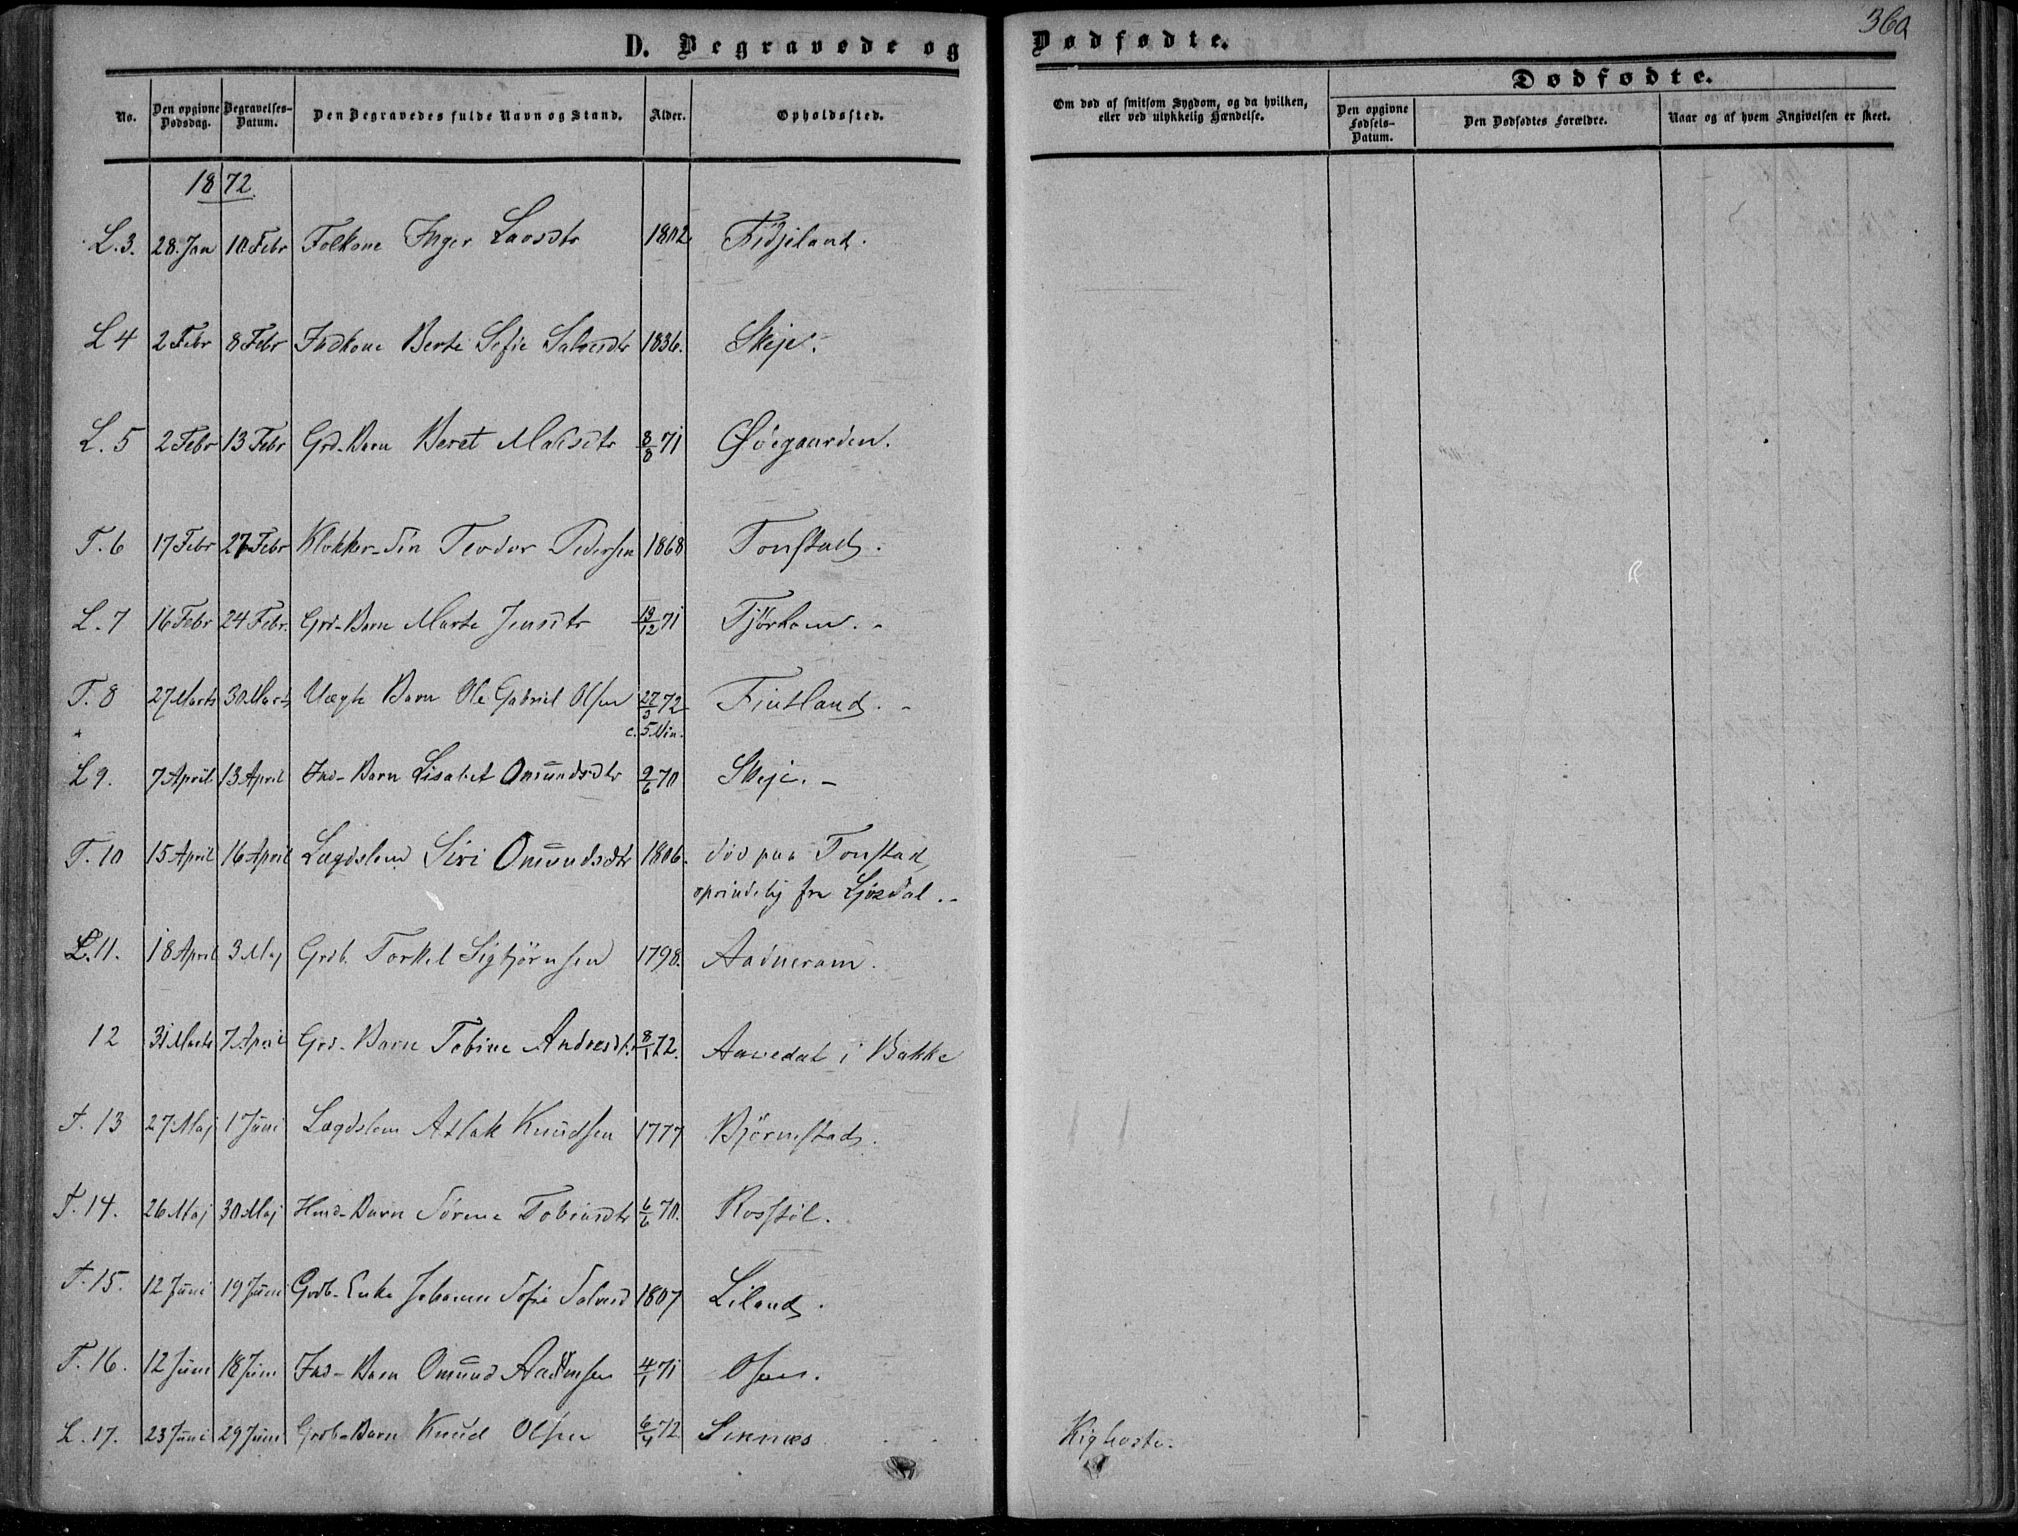 D. Begravede og Dødfødte.
360
Dødfødte.
No. Den opgivne Dødsdag. Begravelses-Datum. Den Begravedes fulde Navn og Stand. Alder. Opholdssted. Om død af smitsom Sygdom, og da hvilken, eller ved ulykkelig Hændelse. Den opgivne Fødsels-Datum. Den Dødfødtes Forældre. Naar og af hvem Angivelsen er skeet.
1872.
L. 3. 28. Jan 10. Febr Folkone Inger Larsdtr 1802. Fidjeland.
L 4 2 Febr 8 Febr Indkone Berte Sofie Salvesdtr 1836. Skeje.
L. 5 2 Febr 13 Febr Grd-Barn Beret 8/8 71 Øiegaarden.
T. 6 17 Febr 27 Febr Klokker-Søn Teodor Pedersen 1868 Tonstad.
L. 7 16 Febr 24 Febr. Grd-Barn Marte Jensdtr 19/12 71 Tjørhom. -
T. 8 27 Marts 30 Marts Uægte Barn Ole Gabriel Olsen 27/3 72 Fintland. -
c. 5 Min.
L 9. 7 April 13 April Ind-Barn Lisabet Omundsdtr 9/6 70 Skeje. -
T. 10 15 April 16 April Lægdslem Siri Omundsdtr 1806. død paa Tonstad,
oprindelig fra Ljosdal. -
L. 11. 18 April 3 Maj Grdb. Torkel Sigbjørnsen 1798. Aadneram.
12 31 Marts 7 April Grd-Barn Tobine Andreasdtr 8/1 72. Aavedal i Bakke
T. 13 27 Maj 1 Juni Lægdslem Atlak Knudsen 1777 Bjørnestad.
T. 14. 26 Maj 30 Maj Hmd-Barn Sørine Tobiasdtr 6/6 70. Rosstøl.
T. 15. 12 Juni 19 Juni Grdb-Enke Johanne Sofie Salvesd 1807 Liland.
T. 16. 12 Juni 18 Juni Ind-Barn Omund 4/1 71 Osen.
L. 17. 23 Juni 29 Juni Grdb-Barn Knud Olsen 6/4 72 Sinnes Kighoste.